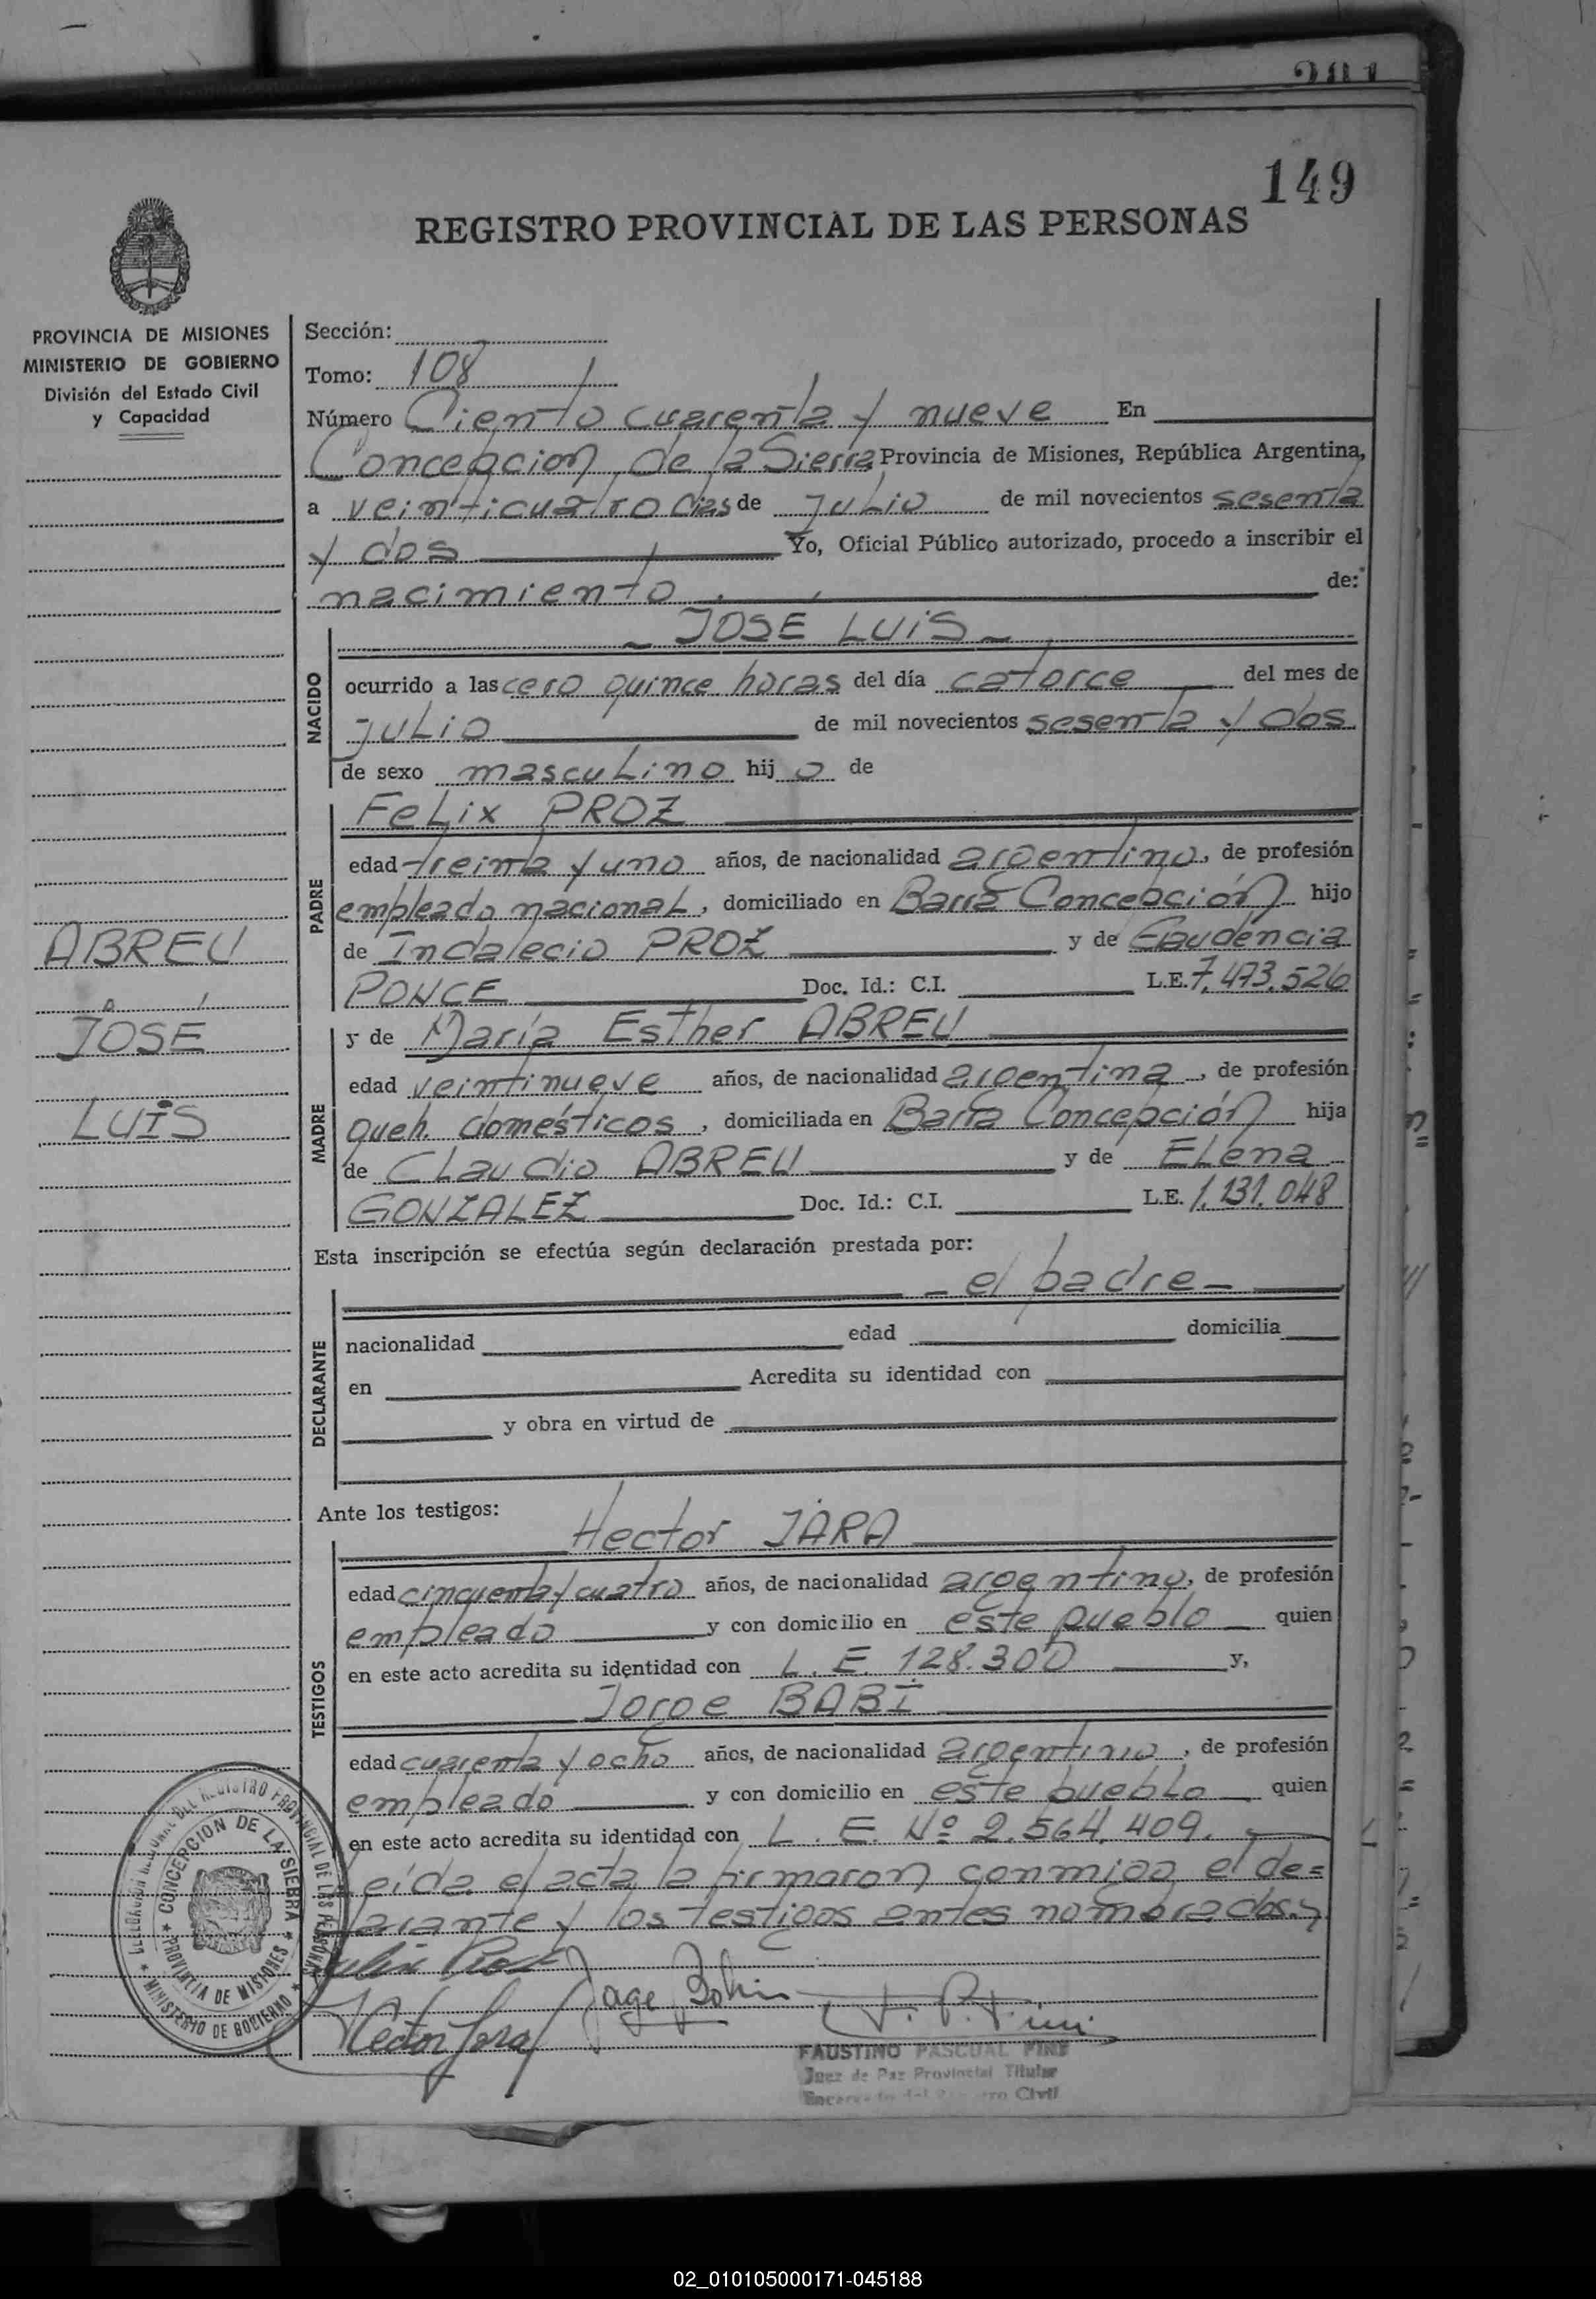 149
REGISTRO PROVINCIAL DE LAS PERSONAS
PROVINCIA DE MISIONES
MINISTERIO DE GOBIERNO
División del Estado Civil
y Capacidad
ABREU
JOSÉ
LUIS
Sección:
Tomo: 108
Número Ciento cuarenta y nueve En
Concepcion de la Sierra Provincia de Misiones, República Argentina,
a veinticuatro días de julio de mil novecientos sesenta
y dos Yo, Oficial Público autorizado, procedo a inscribir el
nacimiento de:
NACIDO
JOSE LUIS
ocurrido a las cero quince horas del día catorce del mes de
julio de mil novecientos sesenta y dos
de sexo masculino hijo de
PADRE
Felix PROZ
edad treinta y uno años, de nacionalidad argentino, de profesión
empleado nacional, domiciliado en Barra Concepción hijo
de Indalecio PROZ y de Gaudencia
PONCE Doc. Id.: C.I. L.E. 7.473.526
MADRE
y de María Esther ABREU
edad veintinueve años, de nacionalidad argentina, de profesión
queh. domésticos, domiciliada en Barra Concepción hija
de Claudio ABREU y de Elena
GONZALEZ Doc. Id.: C.I. L.E. 1.131.048
Esta inscripción se efectúa según declaración prestada por:
- el padre -
DECLARANTE
nacionalidad edad domicilia
en Acredita su identidad con
y obra en virtud de
Ante los testigos:
TESTIGOS
Hector JARA
edad cincuenta y cuatro años, de nacionalidad argentino, de profesión
empleado y con domicilio en este pueblo quien
en este acto acredita su identidad con L. E. 128.300 y,
Jorge BABI
edad cuarenta y ocho años, de nacionalidad argentino, de profesión
empleado y con domicilio en este pueblo quien
en este acto acredita su identidad con L. E. Nº 2.564.409.
Leída el acta la firmaron conmigo el de=
clarante y los testigos antes nombrados.
Hector Jara
CONCEPCION DE LA SIERRA
PROVINCIA DE MISIONES
MINISTERIO DE GOBIERNO
FAUSTINO PASCUAL
Juez de Paz Provincial Titular
Civil
02_010105000171-045188